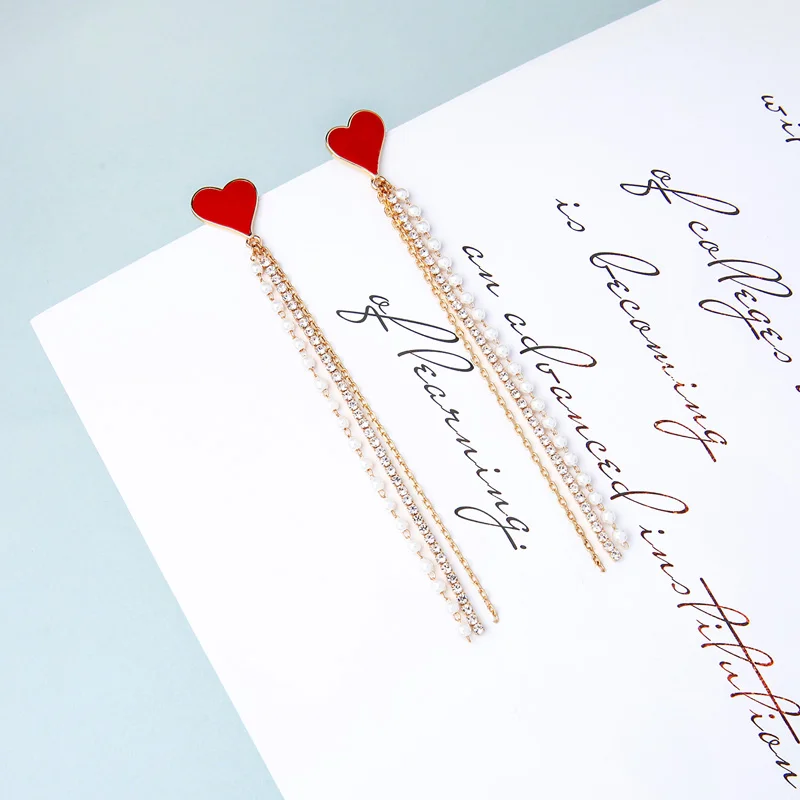 wit
of colleges
is becoming
an advanced institution
of learning.